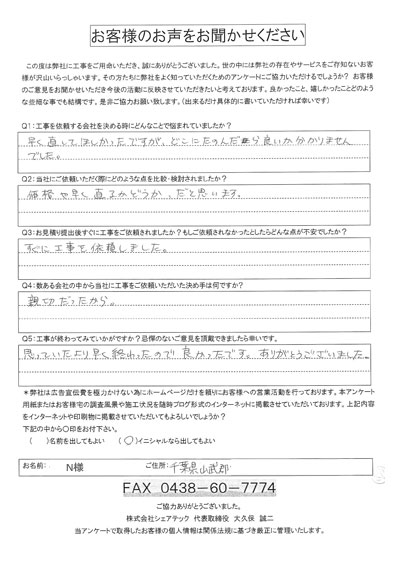 お客様のお声をお聞かせください
この度は弊社に工事をご用命いただき、誠にありがとうございました。世の中には弊社の存在やサービスをご存知ないお客
様が沢山いらっしゃいます。その方たちに弊社をよく知っていただくためのアンケートにご協力いただけるでしょうか？ お客様
のご意見をお聞かせいただき今後の活動に反映させていただきたいと考えております。良かったこと、嬉しかったことどのよう
な些細な事でも結構です。是非ご協力お願い致します。（出来るだけ具体的に書いていただければ幸いです）
Q1：工事を依頼する会社を決める時にどんなことで悩まれていましたか？
早く直してほしかったですが、どこにたのんだら良いか分かりません
でした。
Q2：当社にご依頼いただく際にどのような点を比較・検討されましたか？
価格や早く直るかどうか、だと思います。
Q3：お見積り提出後すぐに工事をご依頼されましたか？もしご依頼されなかったとしたらどんな点が不安でしたか？
すぐに工事を依頼しました。
Q4：数ある会社の中から当社に工事をご依頼いただいた決め手は何ですか？
親切だったから。
Q5：工事が終わってみていかがですか？忌憚のないご意見を頂戴できましたら幸いです。
思っていたより早く終わったので良かったです。ありがとうございました。
＊弊社は広告宣伝費を極力かけない為にホームページだけを頼りにお客様への営業活動を行っております。本アンケート
用紙またはお客様宅の調査風景や施工状況を随時ブログ形式のインターネットに掲載させていただいております。上記内容
をインターネットや印刷物に掲載させていただいてもよろしいでしょうか？
下記の中から〇印をお付下さい。
（　）名前を出してもよい　（〇）イニシャルなら出してもよい
お名前： N様 ご住所： 千葉県山武郡
FAX 0438-60-7774
ご協力ありがとうございました。
株式会社シェアテック 代表取締役 大久保 誠二
当アンケートで取得したお客様の個人情報は関係法規に基づき厳正に管理いたします。